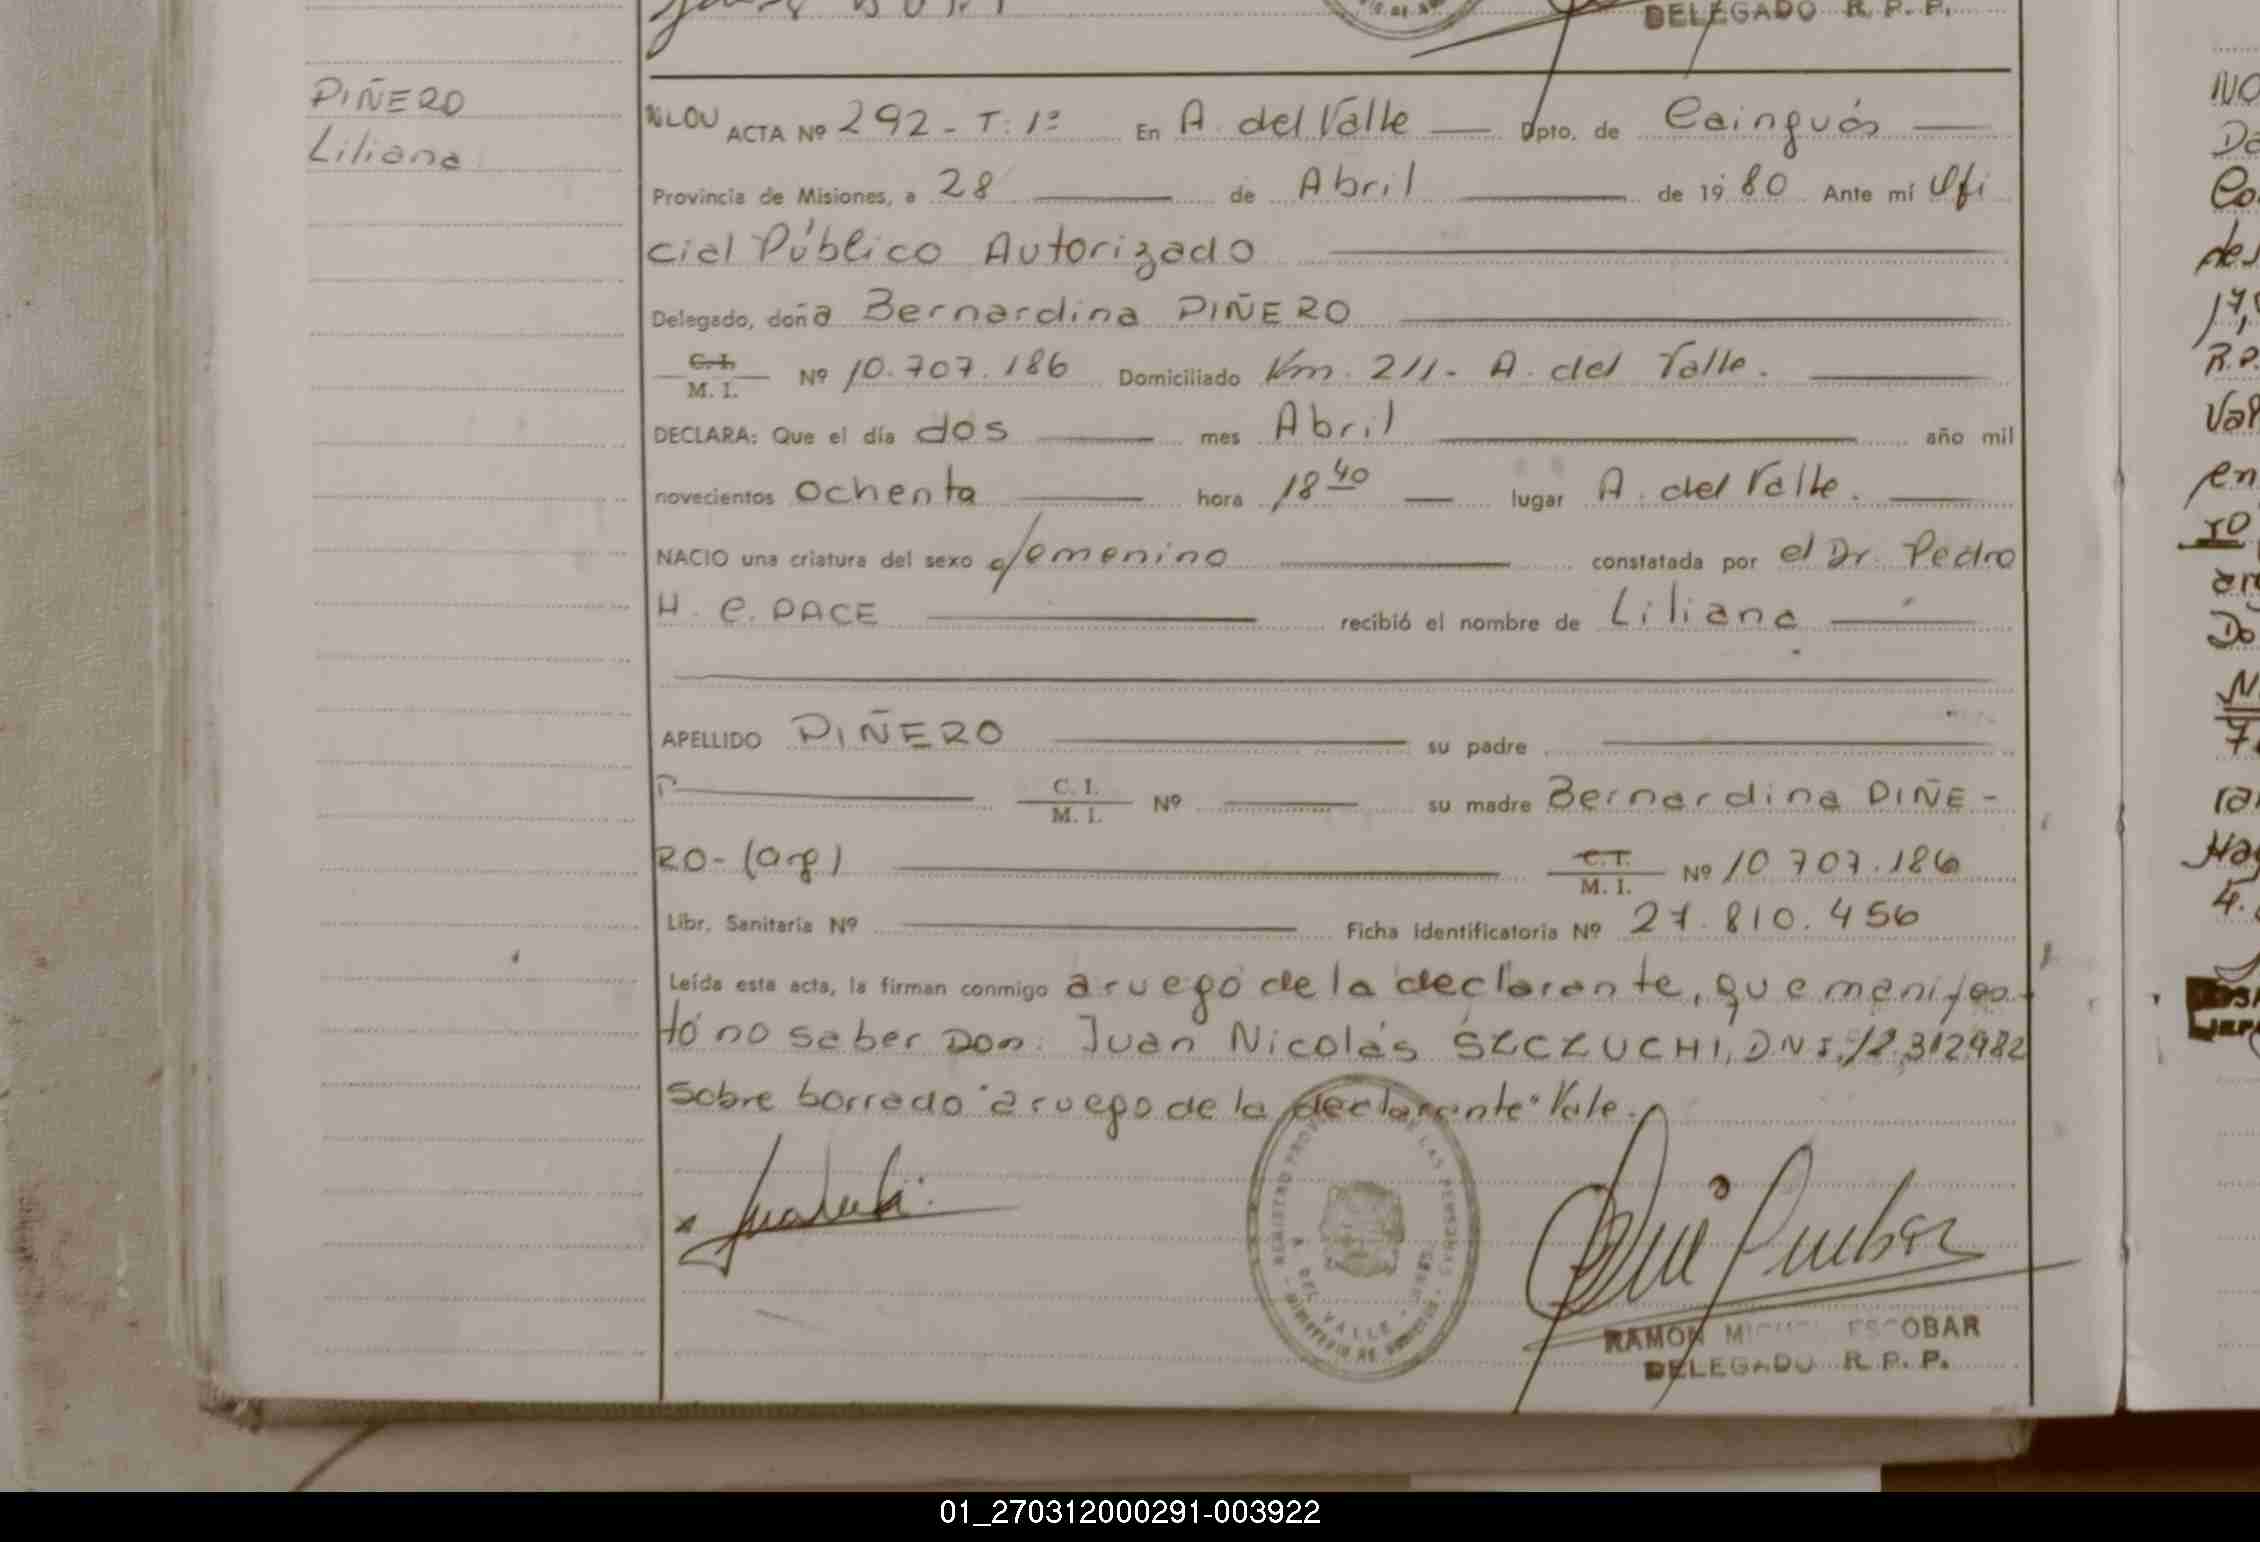 DELEGADO R. P. P.
PIÑERO
Liliana
ACTA Nº 292 - T: 1º En A. del Valle Dpto. de Cainguás
Provincia de Misiones, a 28 de Abril de 1980 Ante mí Ofi
cial Público Autorizado
Delegado, doña Bernardina PIÑERO
C. I.
M. I. Nº 10.707.186 Domiciliado Km. 211 - A. del Valle.
DECLARA: Que el día dos mes Abril año mil
novecientos ochenta hora 18 40 lugar A. del Valle.
NACIO una criatura del sexo femenino constatada por el Dr. Pedro
H. C. PACE recibió el nombre de Liliana
APELLIDO PIÑERO su padre
C. I.
M. I. Nº su madre Bernardina PIÑE-
RO - (arg) C. I.
M. I. Nº 10 707.186
Libr. Sanitaria Nº Ficha Identificatoria Nº 27.810.456
Leída esta acta, la firman conmigo a ruego de la declarante, que manifes-
tó no saber Don: Juan Nicolás SZCZUCHI, DNI. 12.312982
Sobre borrado "a ruego de la declarante" Vale.
A. DEL VALLE
RAMON MIGUEL ESCOBAR
DELEGADO R. P. P.
01_270312000291-003922